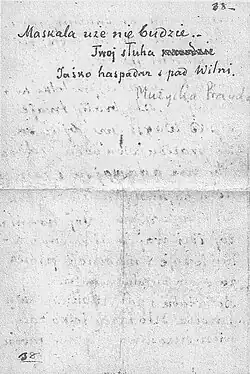 38
Maskala uże nię budzie..
Twoj słuha
Jaśko haspadar s pad Wilni.
Mużyckia Prawda
38